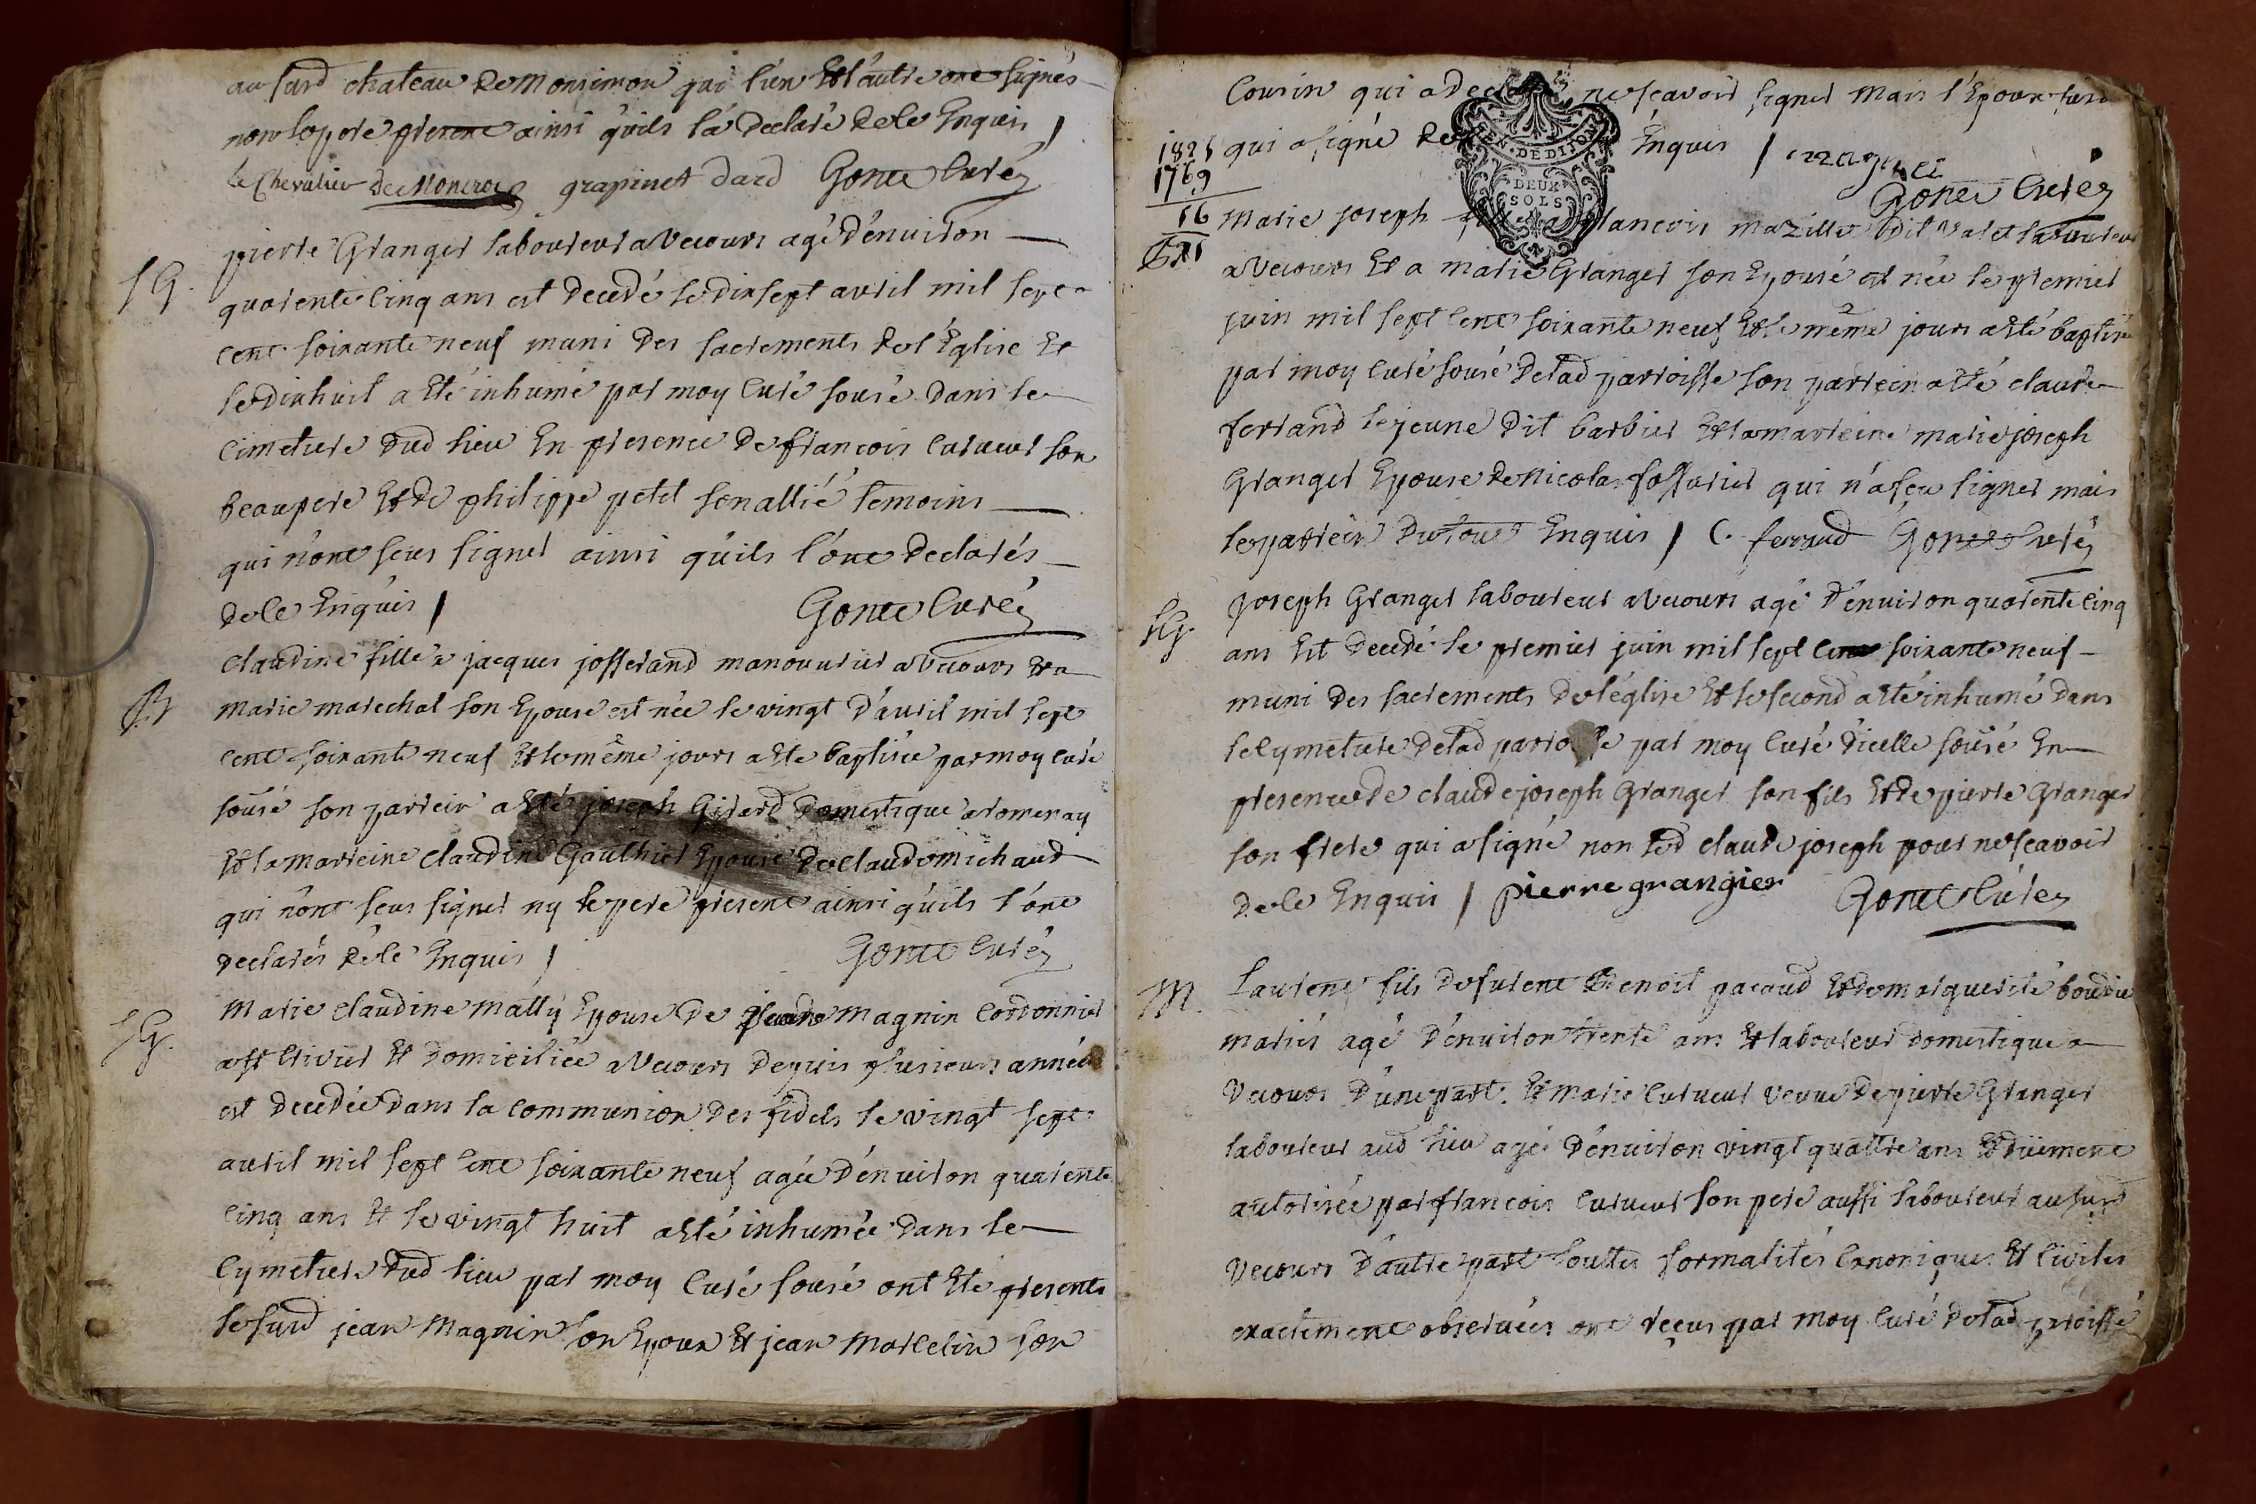 au susd chateau de Monsimon qui l'un et l'autre ont signés
non le pere present ainsi qu'ils l'a declaré de ce Enquis /
le Chevalier de Moncroc grapinet dard Gonce Curé
S G.
pierre Granger laboureur a Vecours agé d'environ
quarente cinq ans est decedé le dixsept avril mil sept
cent soixante neuf muni des sacrements de l'Eglise et
le dixhuit a eté inhumé par moy curé sousé dans le
cimetiere dud lieu En presence de francois cuueur son
beaupere et de philippe petit son allié temoins
qui n'ont sceus signer ainsi qu'ils l'ont declarés
de ce Enquis / Gonce Curé
B
claudine fille a jacques josserand manouvrier a Vecours et a
marie marechal son Epouse est née le vingt d'avril mil sept
cent soixante neuf et le même jours a eté baptisée par moy curé
sousé son parrein a eté joseph Girard domestique a romenay
et la marreine claudine Gauthier Epouse de claude michaud
qui n'ont sceus signer ny le pere present ainsi qu'ils l'ont
declarés de ce Enquis / Gonce Curé
S G.
Marie claudine Mally Epouse de Magnin Cordonnier
et domiciliée a Vecours depuis plusieurs années
est decedée dans la communion des fidels le vingt sept
avril mil sept cent soixante neuf agée d'environ quarente
cinq ans et le vingt huit a eté inhumée dans le
cymetiere dud lieu par moy Curé sousé ont eté presents
le susd jean Magnin son Epoux et jean Marcelin son
Cousin qui a declaré ne scavoir signer mais l'Epoux susd
qui a signé de Enquis / magnci
Gonce Curé
GEN. DE DIJON
DEUX SOLS
1825
1769
56
B
Marie joseph francois mazille dit valet laboureur
a Vecours et a marie Granger son Epouse est née le premier
juin mil sept cent soixante neuf et le même jours a eté baptisée
par moy curé sousé de lad parroisse son parrein a eté claude
ferrand le jeune dit barbier et la marreine marie joseph
Granger Epouse de Nicolas qui n'a sçeu signer mais
le parrein du tout Enquis / C. ferraud Gonce Curé
S G.
joseph Granger laboureur a Vecours agé d'environ quarente cinq
ans est decedé le premier juin mil sept cent soixante neuf
muni des sacrements de l'église et le second a eté inhumé dans
le cymetiere de lad parroisse par moy curé d'icelle sousé En
presence de claude joseph Granger son fils et de pierre Granger
son frere qui a signé non led claude joseph pour ne scavoir
de ce Enquis / pierre grangier Gonce Curé
M.
Laurent fils de furent Benoit pacaud et de marguerite boudier
mariés agé d'environ trente ans et laboureur domestique a
Vecours d'une part. et marie cuueur veuve de pierre Granger
laboureur aud lieu agée d'environ vingt quattre ans et düement
autorisée par francois cuueur son pere aussi laboureur au susd
Vecours d'autre part touttes formalités canoniques et civiles
exactement observées ont reçus par moy curé de lad parroisse